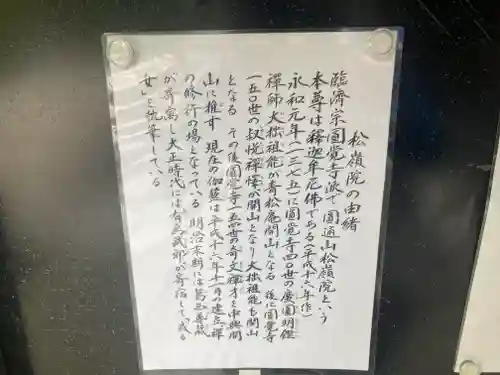 松嶺院の由緒
臨濟宗圓覚寺派で圓通山松嶺院という
本尊は釋迦牟尼佛である(平成十六年作)
永和元年(一三七五)に圓覚寺四〇世の廣圓明鑑
禪師大拙祖能が青松庵開山となる 後に圓覚寺
一五〇世の叔悦禪懌が開山となり大拙祖能も開山
となる その後圓覚寺一五四世の奇文禪才を中興開
山に推す 現在の伽藍は平成十六年十一月の建立禪
の修行の場となっている 明治末期には
が寄寓し大正時代には有島武郎が寄宿して或る
女」を執筆している